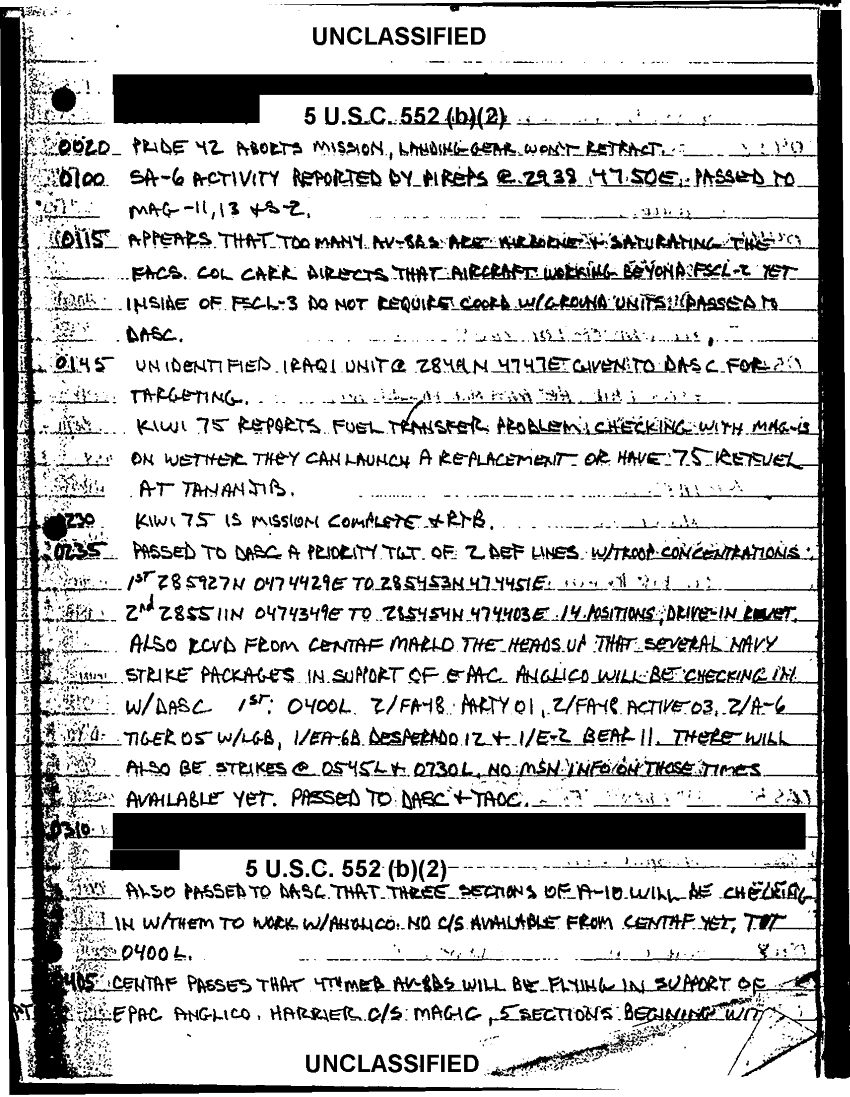 UNCLASSIFIED
5 U.S.C. 552 (b)(2)
0020 PRIDE 42 ABORTS MISSION, LANDING GEAR WON'T RETRACT.
0100 SA-6 ACTIVITY REPORTED BY PIREPS @ 2938 47 50E, PASSED TO
MAG-11, 13 + S-2.
0115 APPEARS THAT TOO MANY AV-8BS ARE AIRBORNE + SATURATING THE
FACS. COL CARR DIRECTS THAT AIRCRAFT WORKING BEYOND FSCL-2 YET
INSIDE OF FSCL-3 DO NOT REQUIRE COORD W/GROUND UNITS. PASSED TO
DASC.
0145 UNIDENTIFIED IRAQI UNIT @ N 4747E GIVEN TO DASC FOR
TARGETING.
KIWI 75 REPORTS FUEL TRANSFER PROBLEM, CHECKING WITH MAG-13
ON WETHER THEY CAN LAUNCH A REPLACEMENT OR HAVE 75 REFUEL
AT TANANJIB.
0230 KIWI 75 IS MISSION COMPLETE + RTB.
0235 PASSED TO DASC A PRIORITY TGT OF 2 DEF LINES W/TROOP CONCENTRATIONS:
1ST 285927N 0474429E TO 285453N 474451E
2nd 285511N 0474349E TO 285454N 474403E 14 POSITIONS, DRIVE-IN REVET.
ALSO RCVD FROM CENTAF MARLO THE HEADS UP THAT SEVERAL NAVY
STRIKE PACKAGES IN SUPPORT OF EPAC ANGLICO WILL BE CHECKING IN
W/DASC 1ST: 0400L 2/FA-18 PARTY 01, 2/FA-18 ACTIVE 03, 2/A-6
TIGER 05 W/LGB, 1/EA-6B DESPERADO 12 + 1/E-2 BEAR 11. THERE WILL
ALSO BE STRIKES @ 0545L + 0730L, NO MSN INFO ON THOSE TIMES
AVAILABLE YET. PASSED TO DASC + TAOC.
0310
5 U.S.C. 552 (b)(2)
ALSO PASSED TO DASC THAT THREE SECTIONS OF A-10 WILL BE CHECKING
IN W/THEM TO WORK W/ANGLICO. NO C/S AVAILABLE FROM CENTAF YET, TOT
0400 L.
0405 CENTAF PASSES THAT AV-8BS WILL BE FLYING IN SUPPORT OF
EPAC ANGLICO. HARRIER C/S MAGIC, 5 SECTIONS BEGINING WIT
UNCLASSIFIED